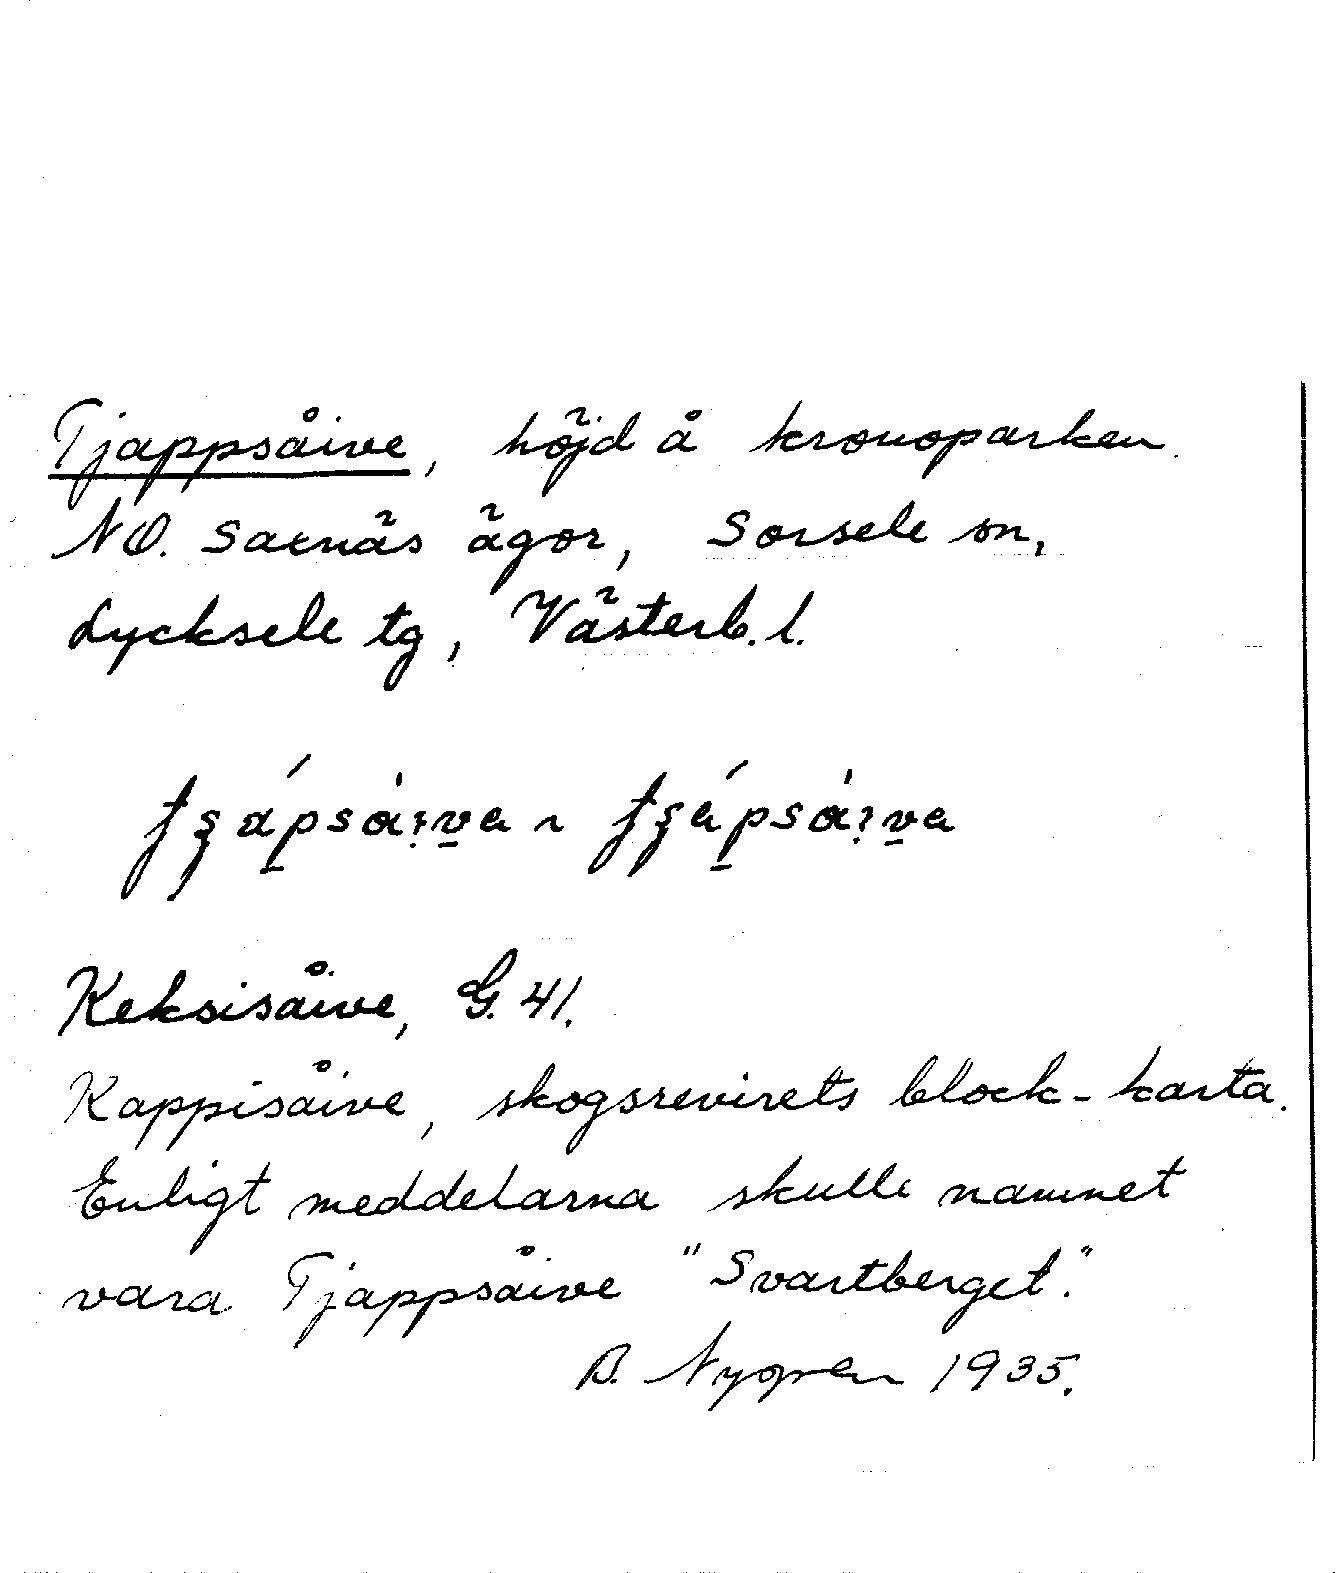 Tjappsåive, höjd å kronoparken
NO. Saxnäs ägor, Sorsele sn,
Lycksele tg, Västerb. l.
Keksisåive, G. 41.
Kappisåive, skogsrevirets block-karta.
Enligt meddelarna skulle namnet
vara Tjappsåive "Svartberget".
B. Nygren 1935.